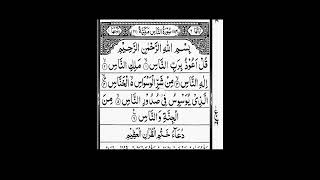 سُوْرَةُ النَّاسِ مَكِّيَّةٌ
بِسْمِ اللّٰهِ الرَّحْمٰنِ الرَّحِيْمِ
قُلْ اَعُوْذُ بِرَبِّ النَّاسِ ۙ مَلِكِ النَّاسِ ۙ
اِلٰهِ النَّاسِ ۙ مِنْ شَرِّ الْوَسْوَاسِ الْخَنَّاسِ ۙ
الَّذِيْ يُوَسْوِسُ فِيْ صُدُوْرِ النَّاسِ ۙ مِنَ
الْجِنَّةِ وَالنَّاسِ
دُعَآءُ خَتْمِ الْقُرْاٰنِ الْعَظِيْمِ